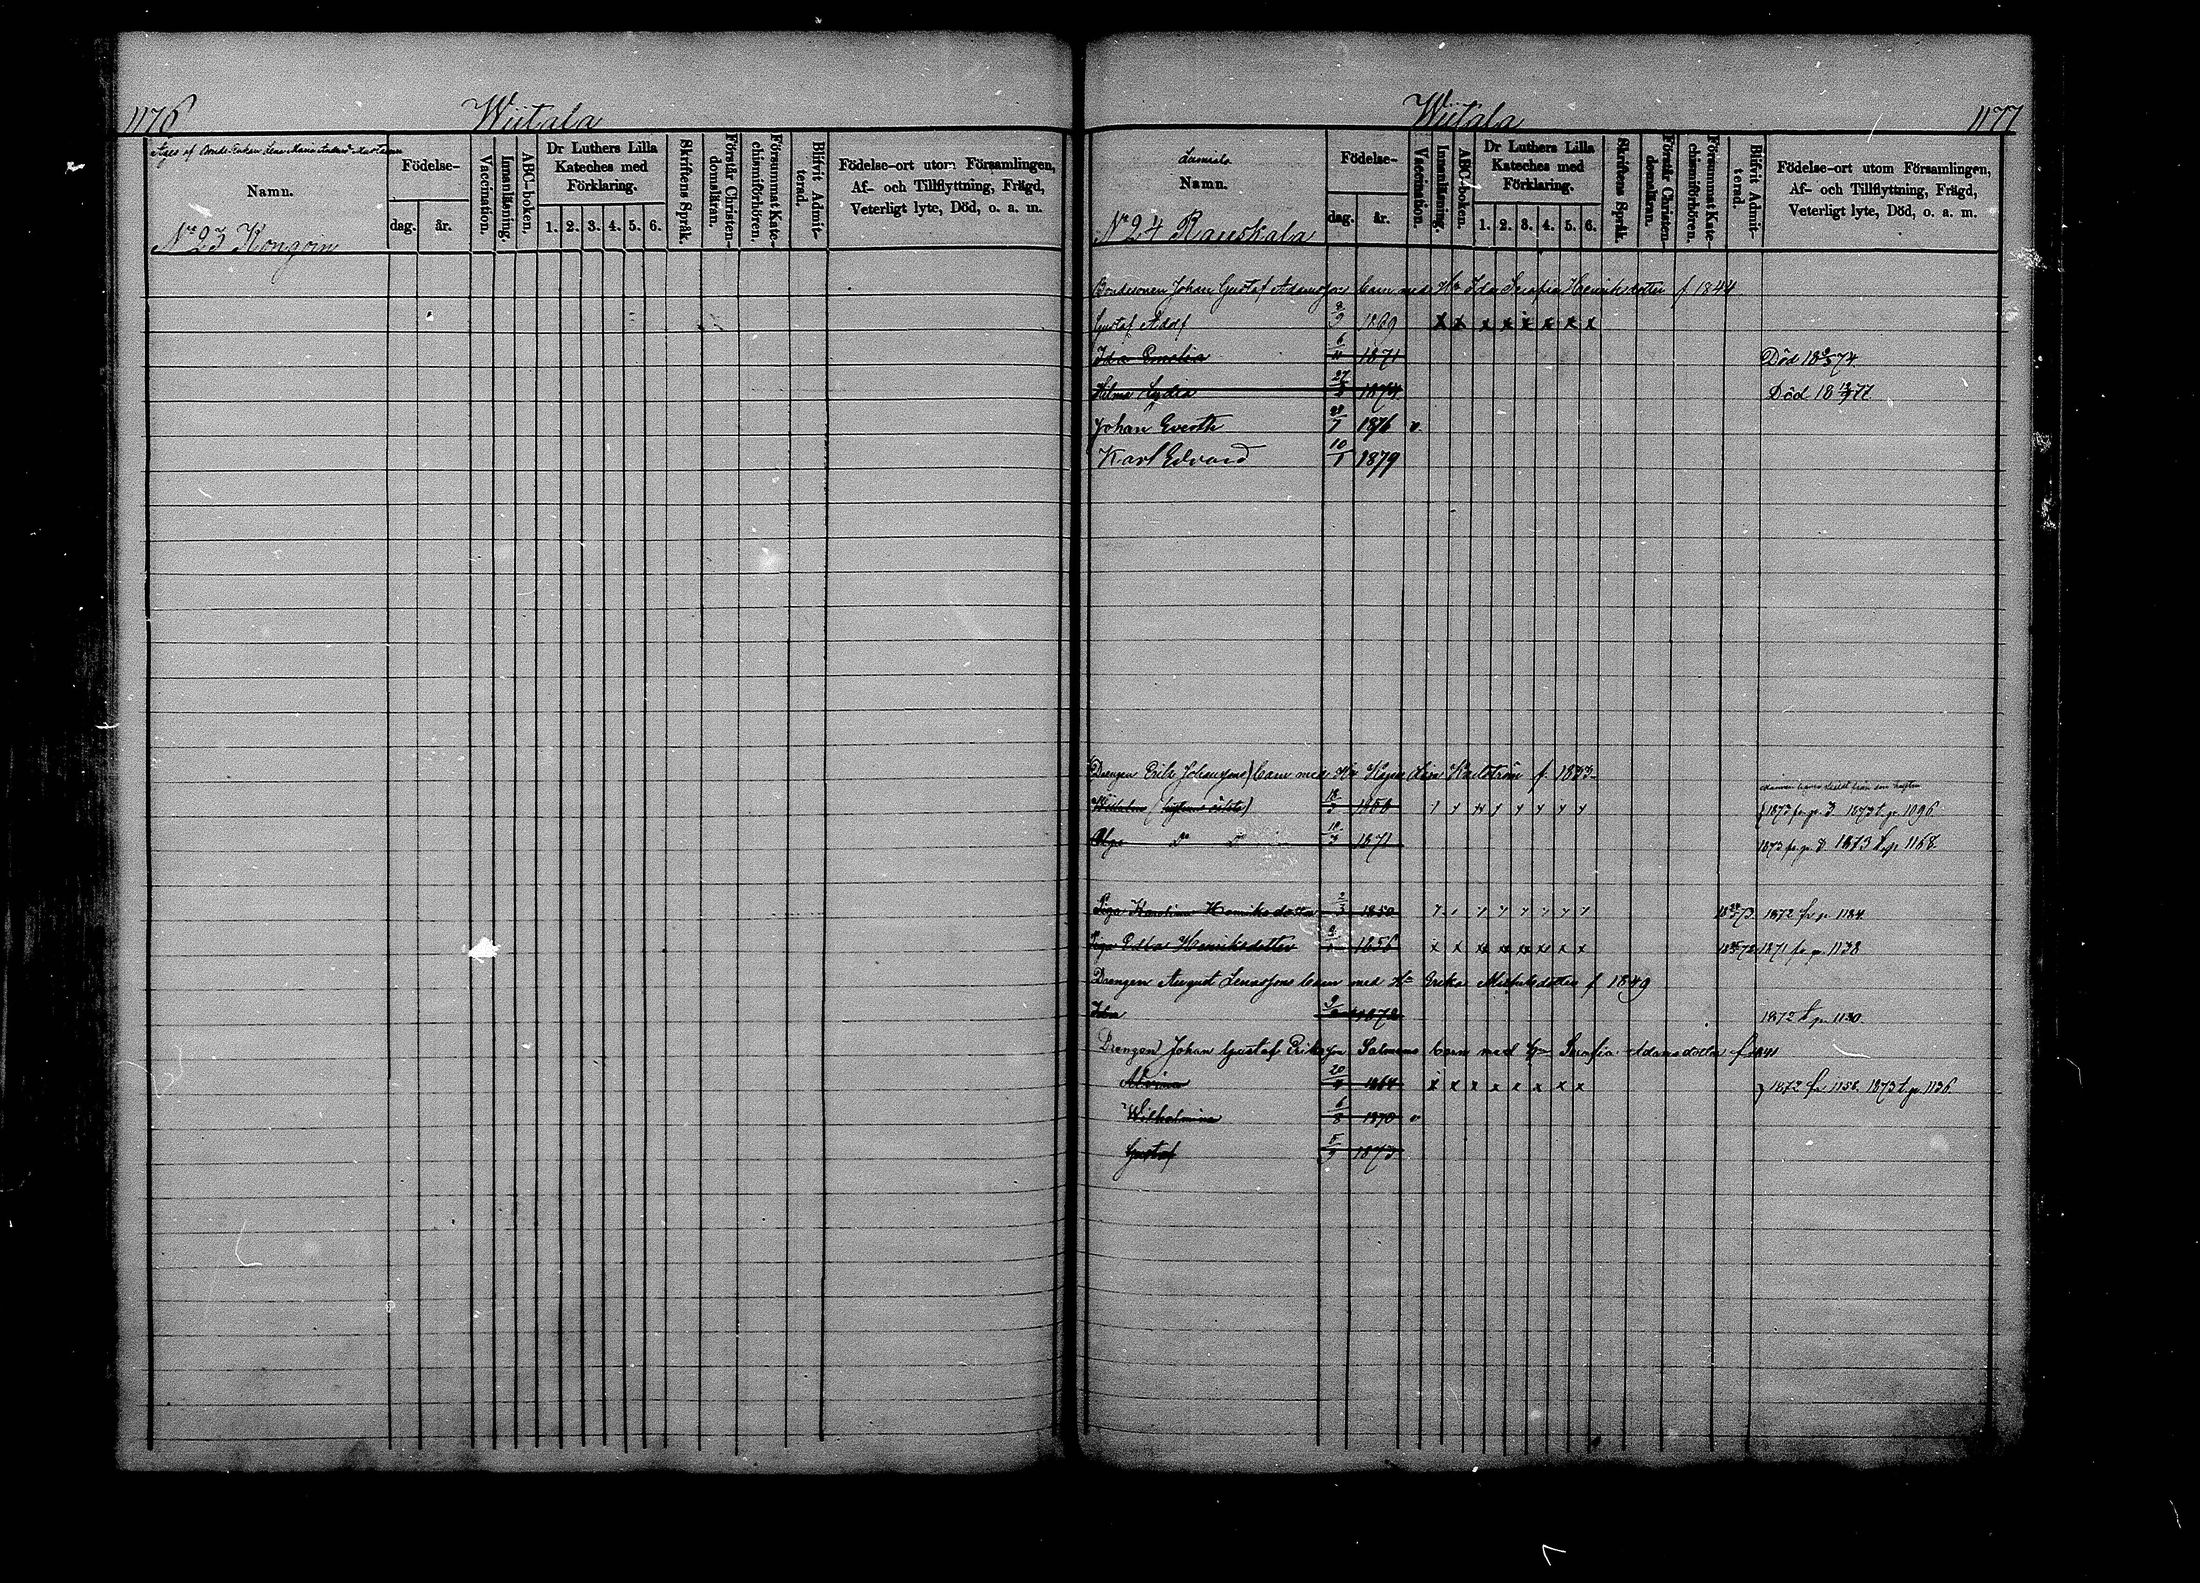 1176 Wiitala
Äges af Bonde Enkan Lena Maria
Namn.
Födelse-
dag. år.
Vaccination.
Innanläsning.
ABC-boken.
Dr Luthers Lilla
Kateches med
Förklaring.
1. 2. 3. 4. 5. 6.
Skriftens Språk.
Förstår Christen-
domsläran.
Försummat Kate-
chismiförhören.
Blifvit Admit-
terad.
Födelse-ort utom Församlingen,
Af- och Tillflyttning, Frägd,
Veterligt lyte, Död, o. a. m.
No 23
Wiitala 1177
Namn.
No 24 Rauskala
Födelse-
dag. år.
Vaccination.
Innanläsning.
ABC-boken.
Dr Luthers Lilla
Kateches med
Förklaring.
1. 2. 3. 4. 5. 6.
Skriftens Språk.
Förstår Christen-
domsläran.
Försummat Kate-
chismiförhören.
Blifvit Admit-
terad.
Födelse-ort utom Församlingen,
Af- och Tillflyttning, Frägd,
Veterligt lyte, Död, o. a. m.
Bondesonen Johan Gustaf Adamsson barn med Hu Ida Serafia Henriksdotter f 1844
Gustaf Adolf 1869 x x x x x x x x
Ida Emelia 6/11 1871 Död 74
Hilma Lydia 27 1874 Död 77
Johan Everth 28/7 1876 v.
Karl Edvard 10/1 1879
Drengen Erik Johansson barn med Hu Kajsa Lisa Karlström f. 1833
Wilhelm 1873 fr. p. 1873 t. p. 1096
Olga Do Do 1871 1873 fr. p. 1873 t. p. 1168
Piga Karolina Henriksdotter 1850 1872 fr p. 1184
Piga Edla Henriksdotter 1856 x x x x x x x x 1871 fr p. 1138
Drengen August barn med Hu Erika f 1849
Ida 1872 1872 t p. 1130
Drengen Johan Gustaf Eriksson Salmens barn med Hu Serafia Adamsdotter f 1841
20 1864 x x x x x x x x 1872 fr 1158. 1873 t p. 1136
Wilhelmina 6/8 1870 v
Gustaf 1873